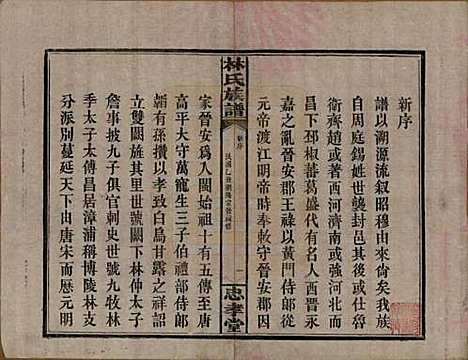 新序
譜以溯源流叙昭穆由來尚矣我族
自周庭錫姓世襲封邑或自任魯
衛齊趙或著西河濟南或強河北而
昌下邳椒蕃葛盛代有名人西晉永
嘉之亂晉安郡王祿以黄門侍郎從
元帝渡江明帝時奉敕守晉安郡遂
林氏族譜
新序
一
忠孝堂
家晉安為人閩始祖十有五傳至唐
高平大守萬寵生三子伯禮部侍郎
韜有孫攢以孝致白烏甘露之祥詔
立雙闕旌其里世號闕下林仲太子
詹事披九子俱官刺史世號九牧林
季太子太傅昌居漳浦稱博陵林支
分派別蔓延天下由唐宋而元而明